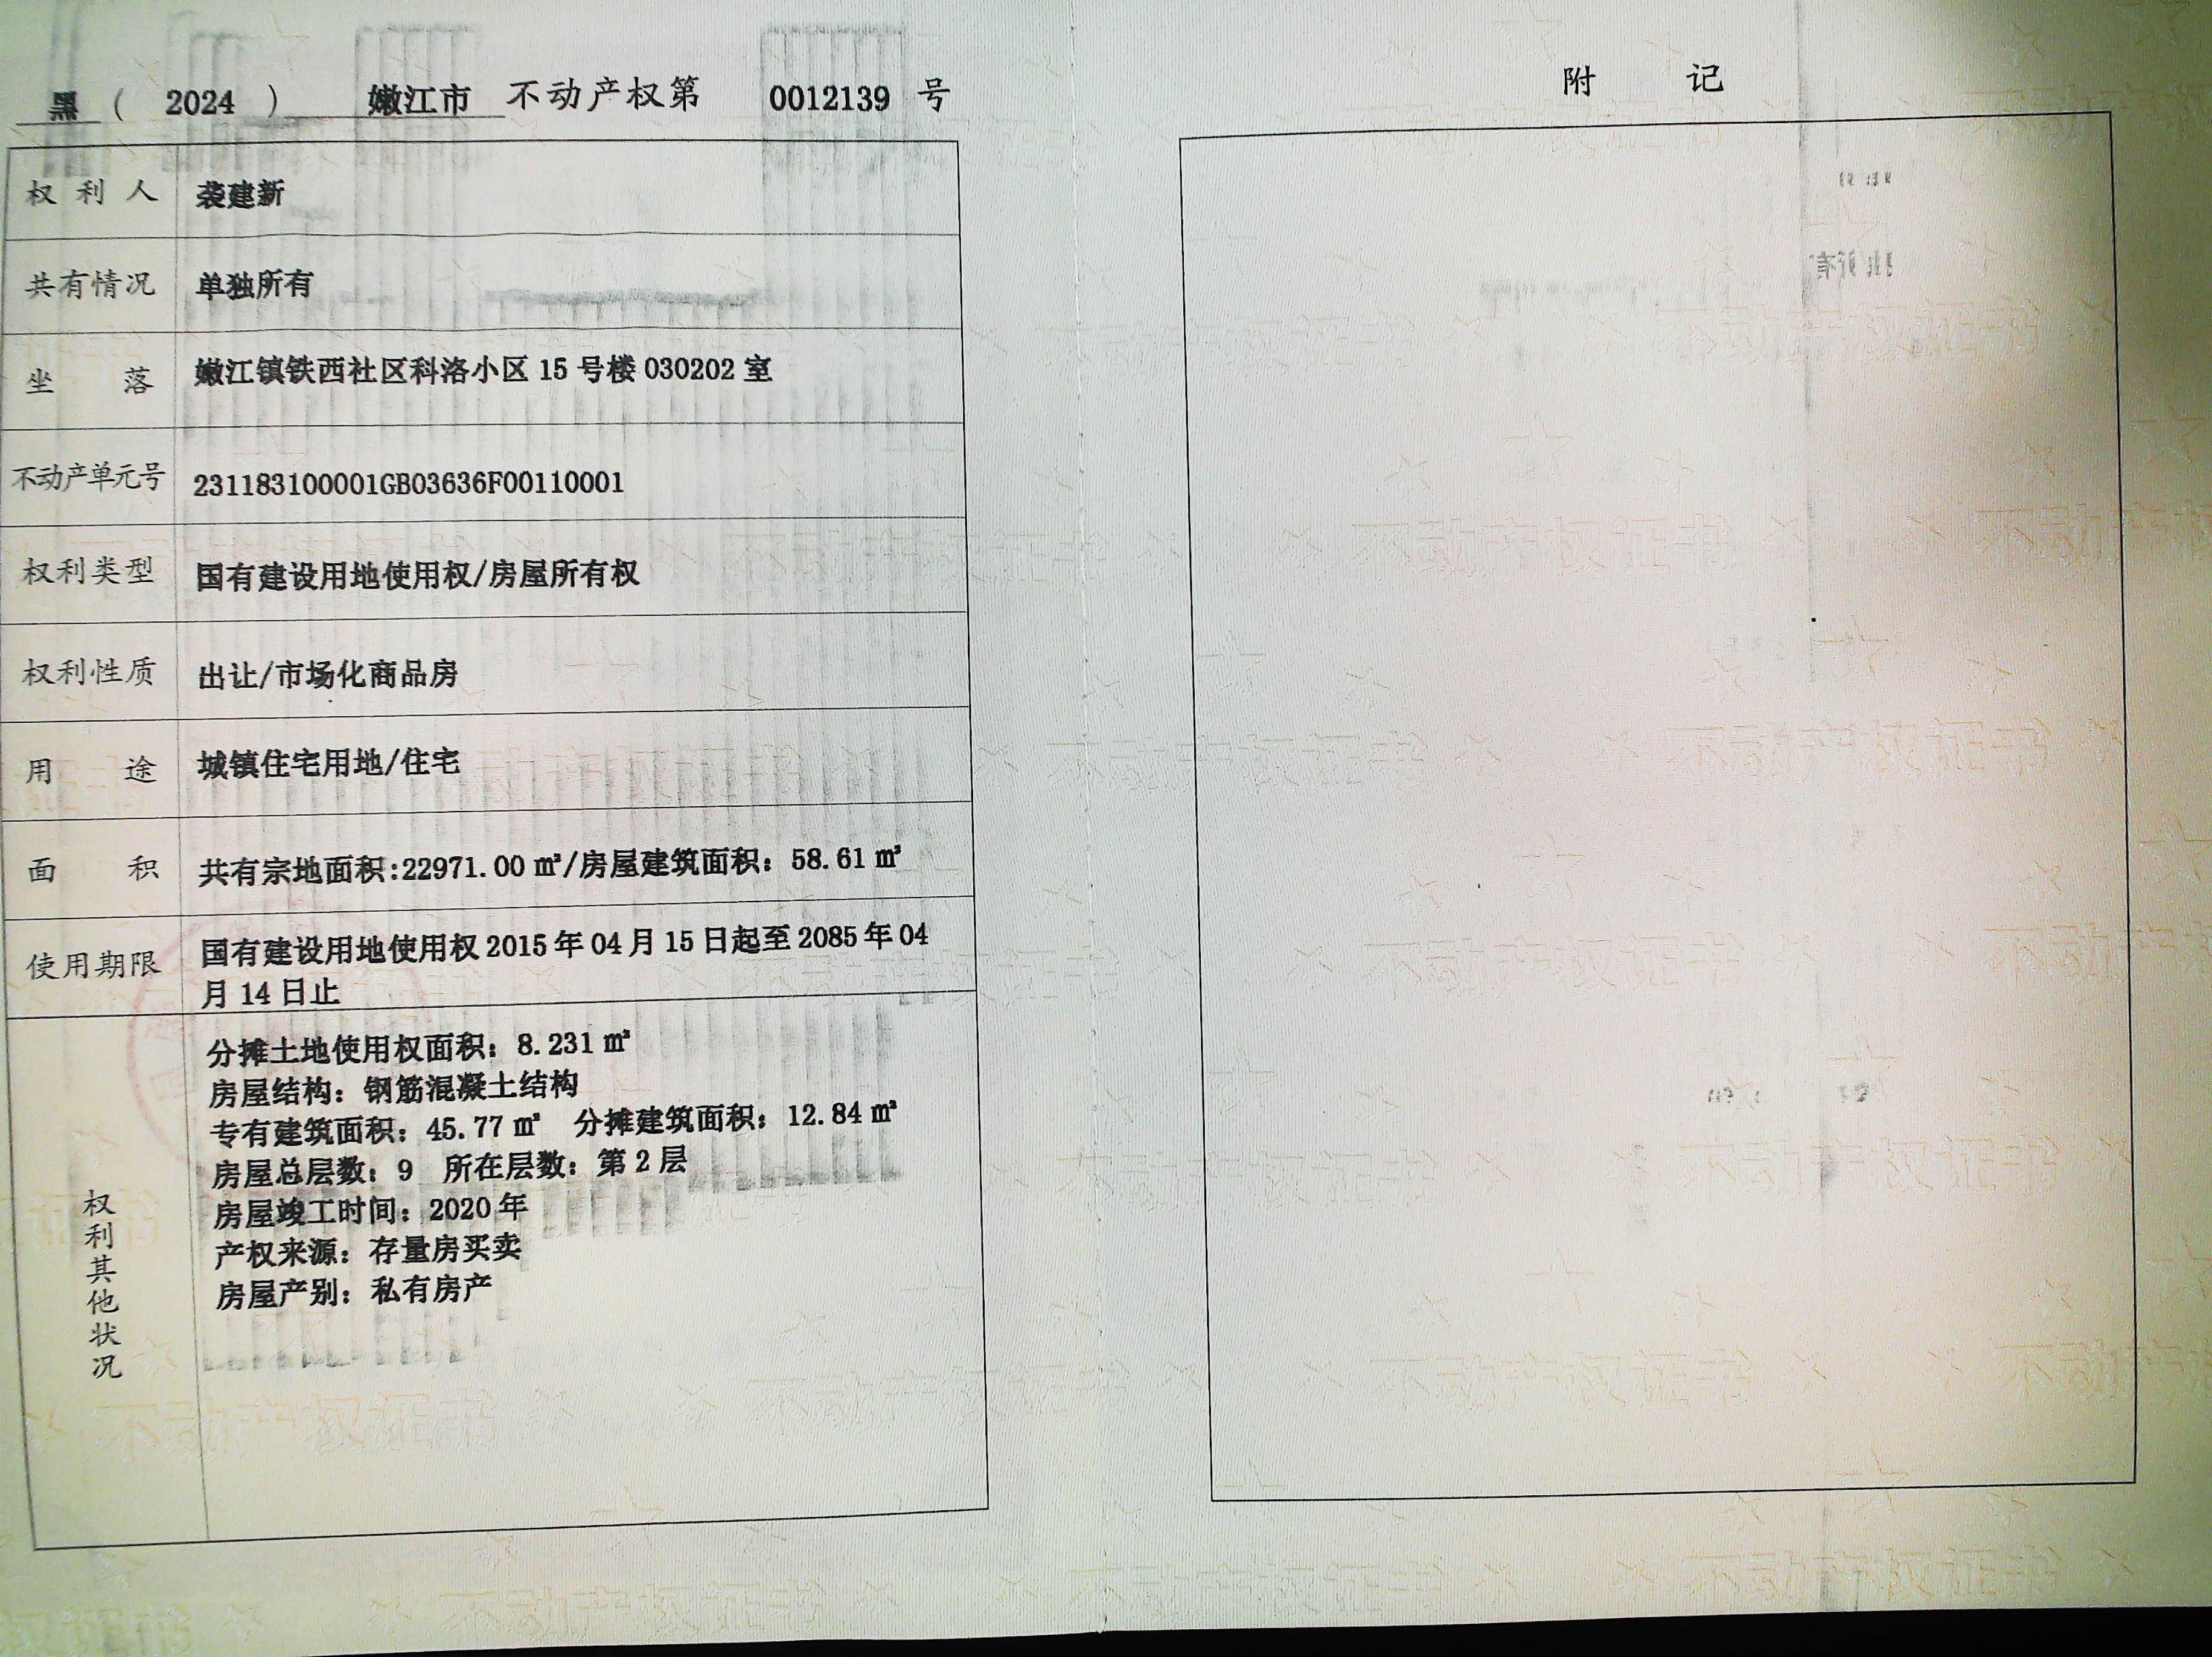 黑（2024）嫩江市不动产权第0012139号
权利人 袭建新
共有情况 单独所有
坐落 嫩江镇铁西社区科洛小区15号楼030202室
不动产单元号 231183100001GB03636F00110001
权利类型 国有建设用地使用权/房屋所有权
权利性质 出让/市场化商品房
用途 城镇住宅用地/住宅
面积 共有宗地面积:22971.00㎡/房屋建筑面积：58.61㎡
使用期限 国有建设用地使用权2015年04月15日起至2085年04
月14日止
权利其他状况
分摊土地使用权面积：8.231㎡
房屋结构：钢筋混凝土结构
专有建筑面积：45.77㎡ 分摊建筑面积：12.84㎡
房屋总层数：9 所在层数：第2层
房屋竣工时间：2020年
产权来源：存量房买卖
房屋产别：私有房产
附记